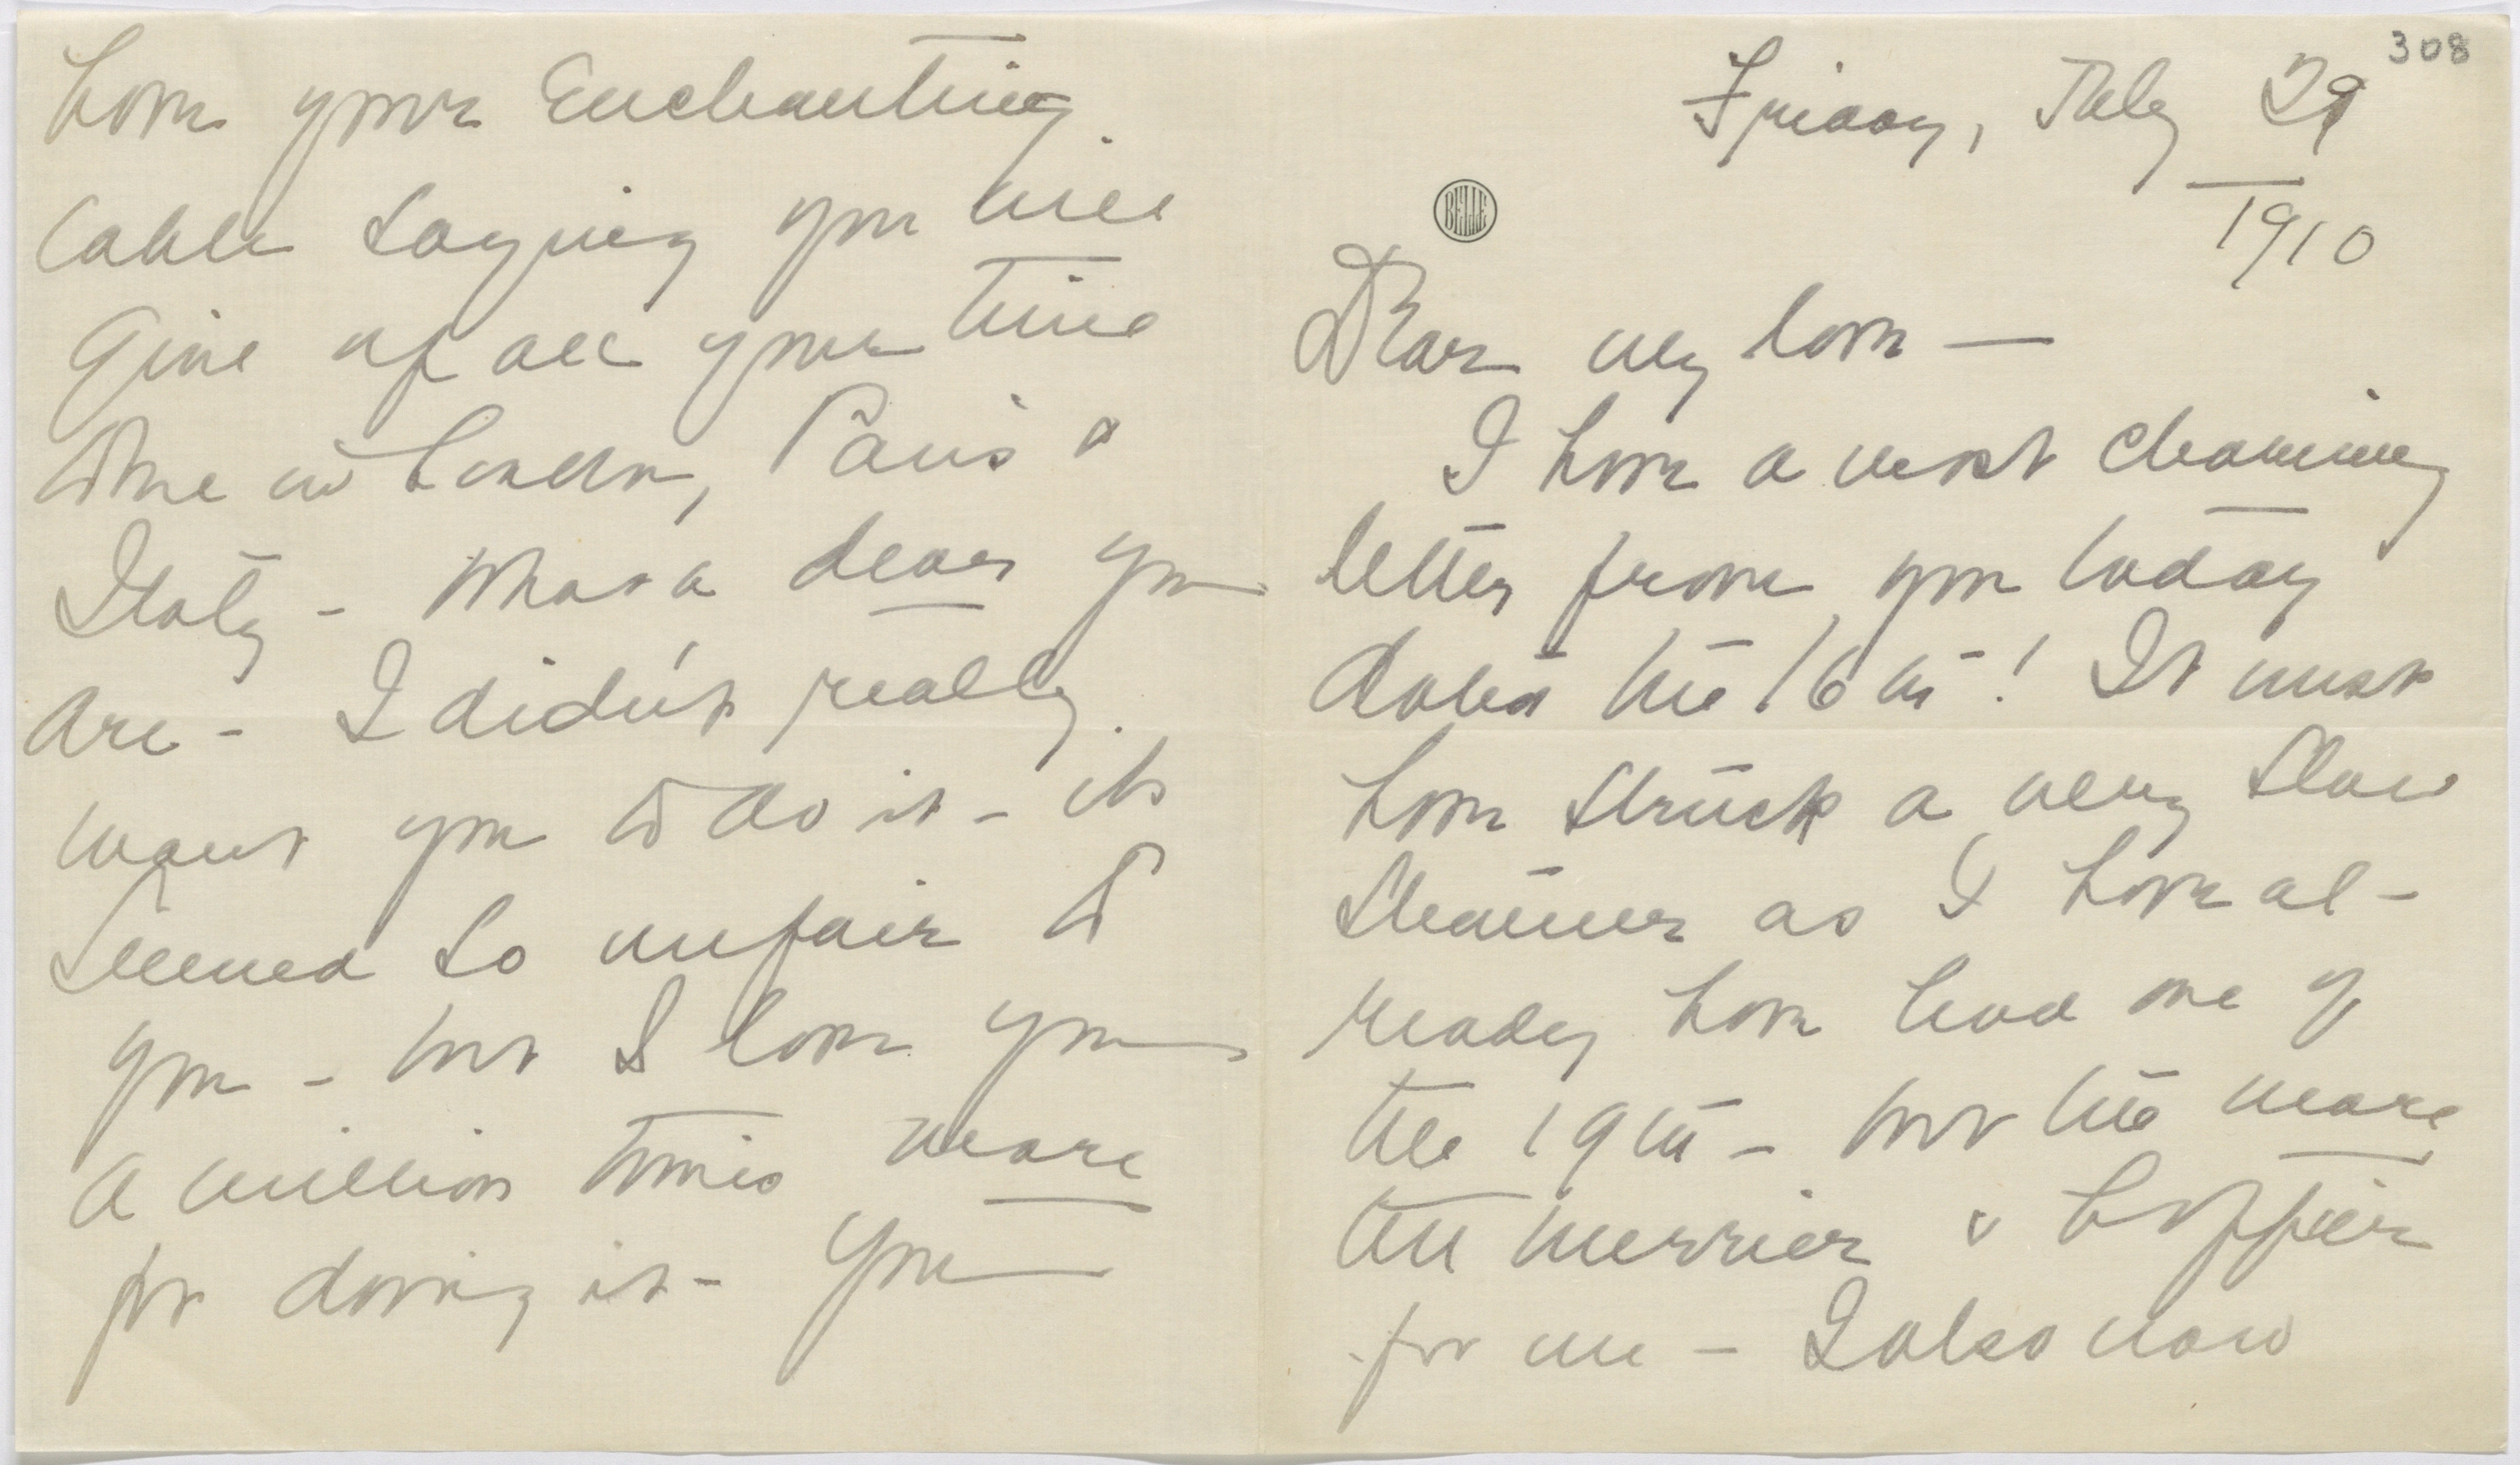 308
Friday, July 29
1910
BELLE
Dear my love —
I have a most charming
letter from you today
dated the 16th! It must
have struck a very slow
steamer as I have al-
ready have had one of
the 19th - but the more
the merrier & happier
for me — I also now
have your Enchanting
cable saying you will
give up all your time
to me in London, Paris &
Italy - What a dear you
are - I didn't really
want you to do it - it
seemed so unfair to
you - but I love you
a million times more
for doing it - You